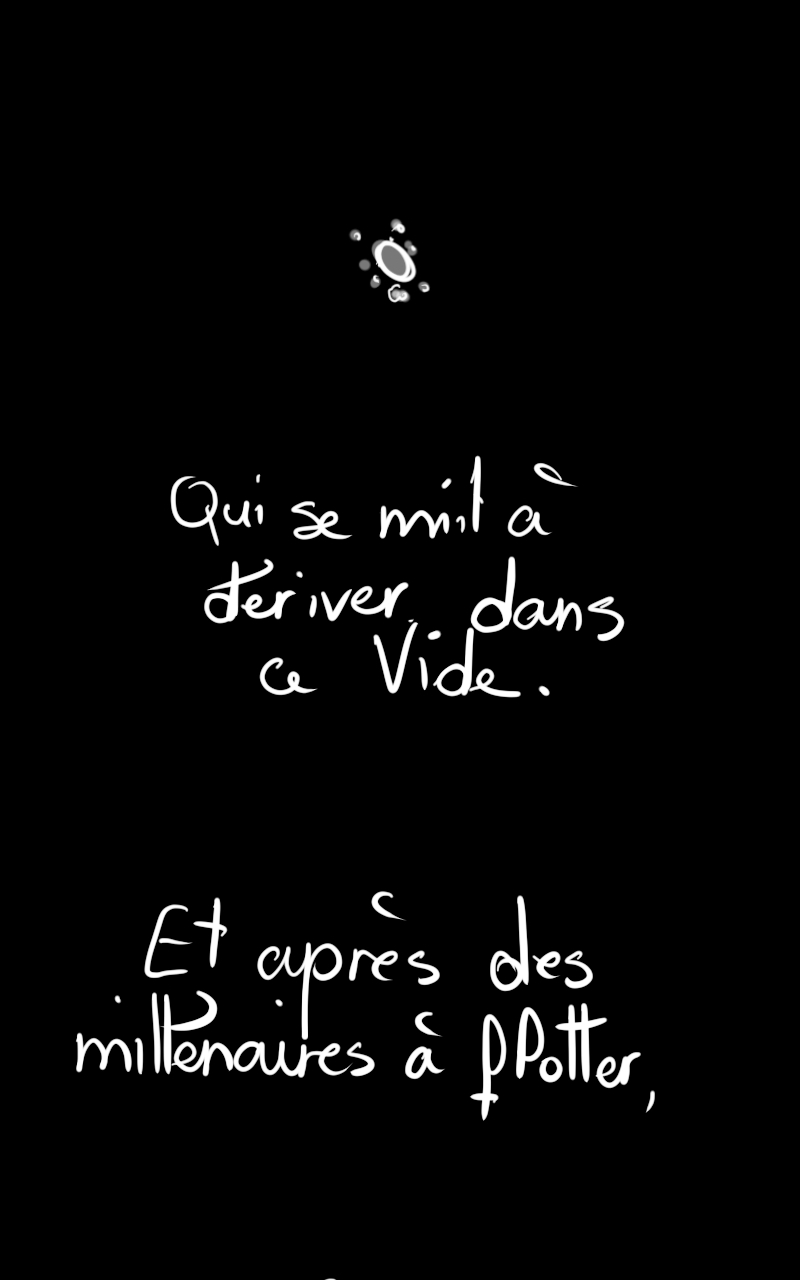 Qui se mit à
dériver dans
ce Vide.
Et après des
millénaires à flotter,